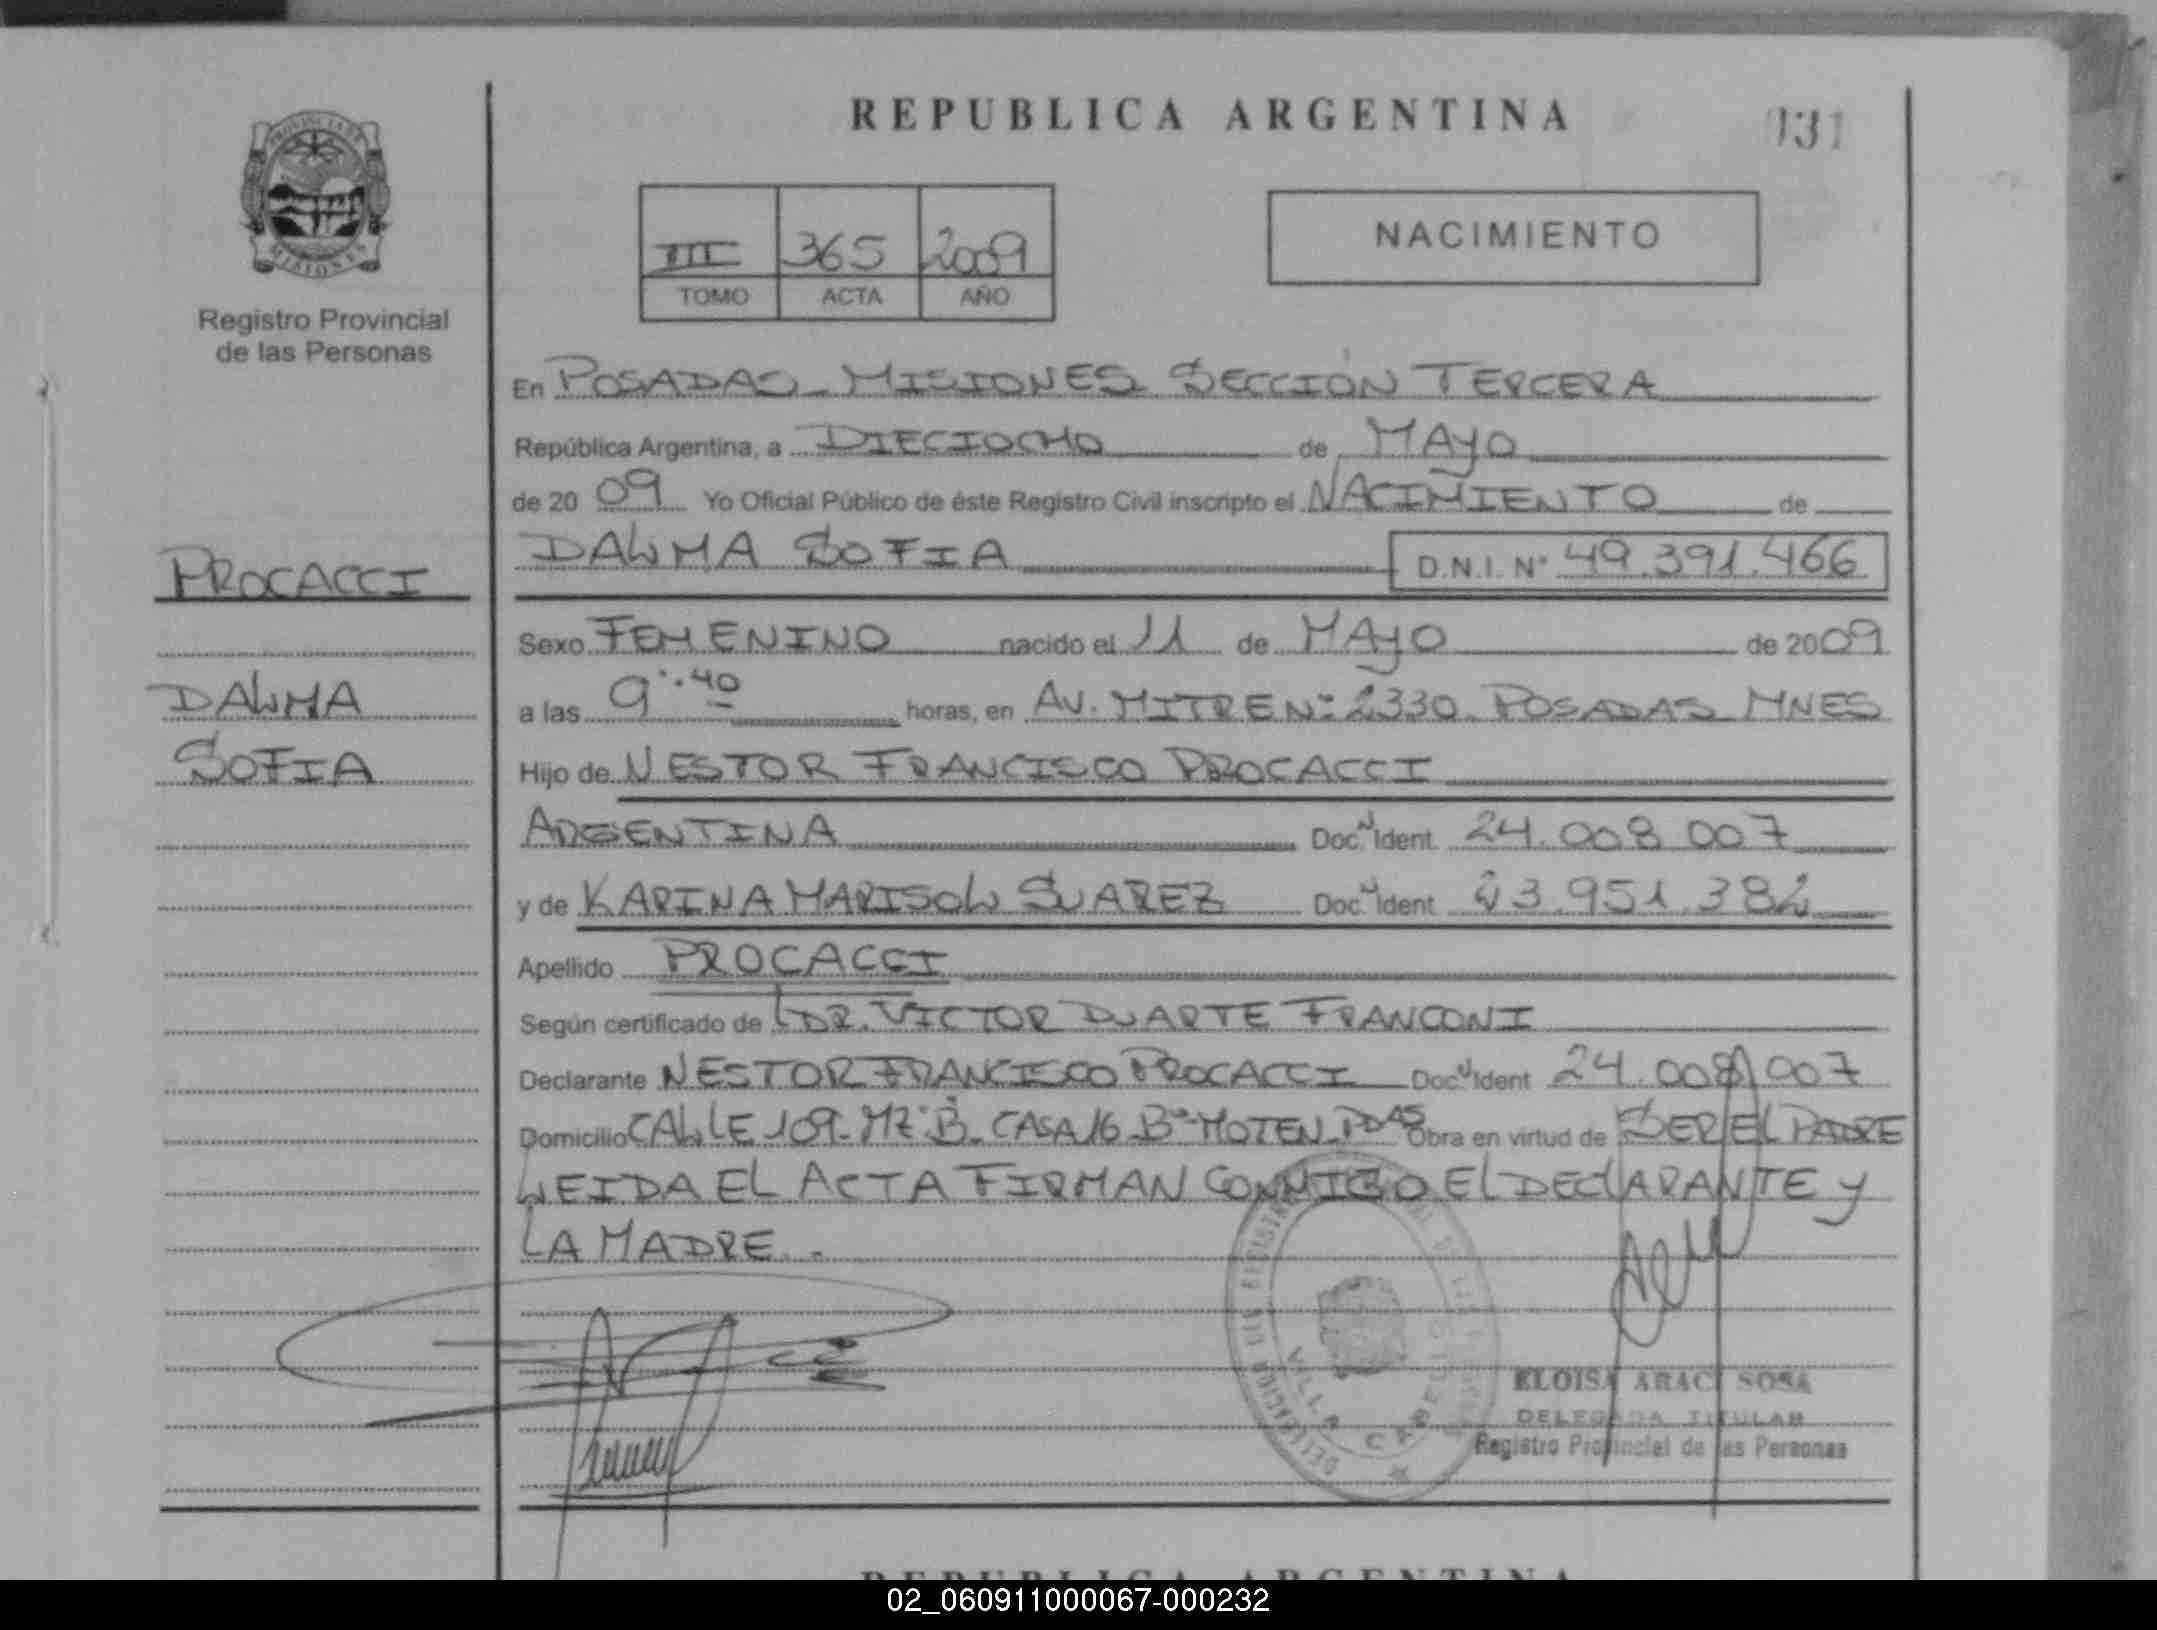 REPUBLICA ARGENTINA
131
PROVINCIA DE
MISIONES
Registro Provincial
de las Personas
III 365 2009
TOMO ACTA AÑO
NACIMIENTO
En POSADAS - MISIONES SECCIÓN TERCERA
República Argentina, a DIECIOCHO de MAYO
de 20 09 Yo Oficial Público de éste Registro Civil inscripto el NACIMIENTO de
DALMA SOFIA D.N.I. N° 49.391.466
PROCACCI
DALMA
SOFIA
Sexo FEMENINO nacido el 11 de MAYO de 2009
a las 9:40 horas, en AV. MITRE N: 2330. POSADAS MNES
Hijo de NESTOR FRANCISCO PROCACCI
ARGENTINA Doc. N Ident. 24.008.007
y de KARINA MARISOL SUAREZ Doc. N Ident. 23.951.382
Apellido PROCACCI
Según certificado de DR. VICTOR DUARTE FRANCONI
Declarante NESTOR FRANCISCO PROCACCI Doc. N Ident 24.008.007
Domicilio CALLE 109- MZ: B. CASA 16 B° MOTEN. PDAS Obra en virtud de SER EL PADRE
LEIDA EL ACTA FIRMAN CONMIGO EL DECLARANTE y
LA MADRE.-
DELEGACION DEL REGISTRO PROVINCIAL DE LAS PERSONAS
VILLA CABELLO
ELOISA ARACI SOSA
DELEGADA TITULAR
Registro Provincial de las Personas
REPUBLICA ARGENTINA
02_060911000067-000232